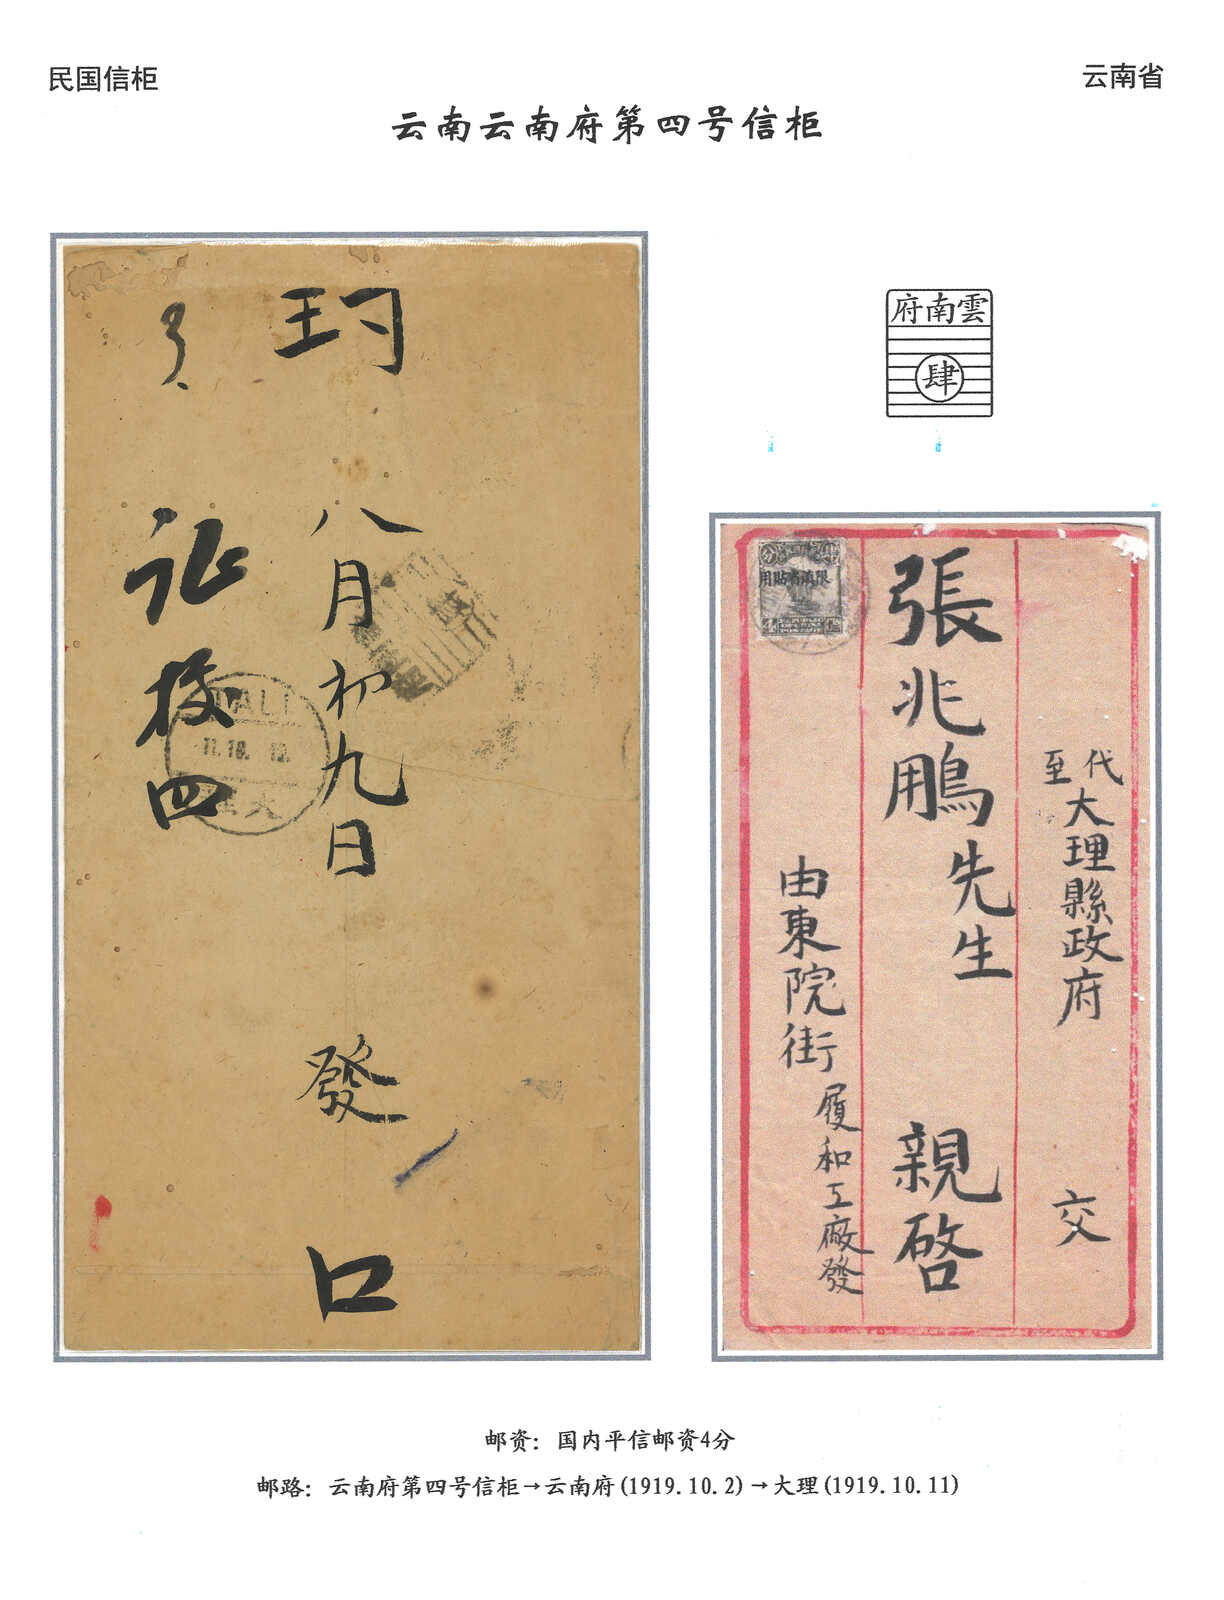 民国信柜
云南省
云南云南府第四号信柜
雲南府
肆
八月初九日 發
口
四
DALI
11.10.
限滇省貼用
4
代
至
大理縣政府 交
張兆鵬先生 親啓
由東院街履和工廠發
邮资：国内平信邮资4分
邮路：云南府第四号信柜→云南府(1919.10.2)→大理(1919.10.11)